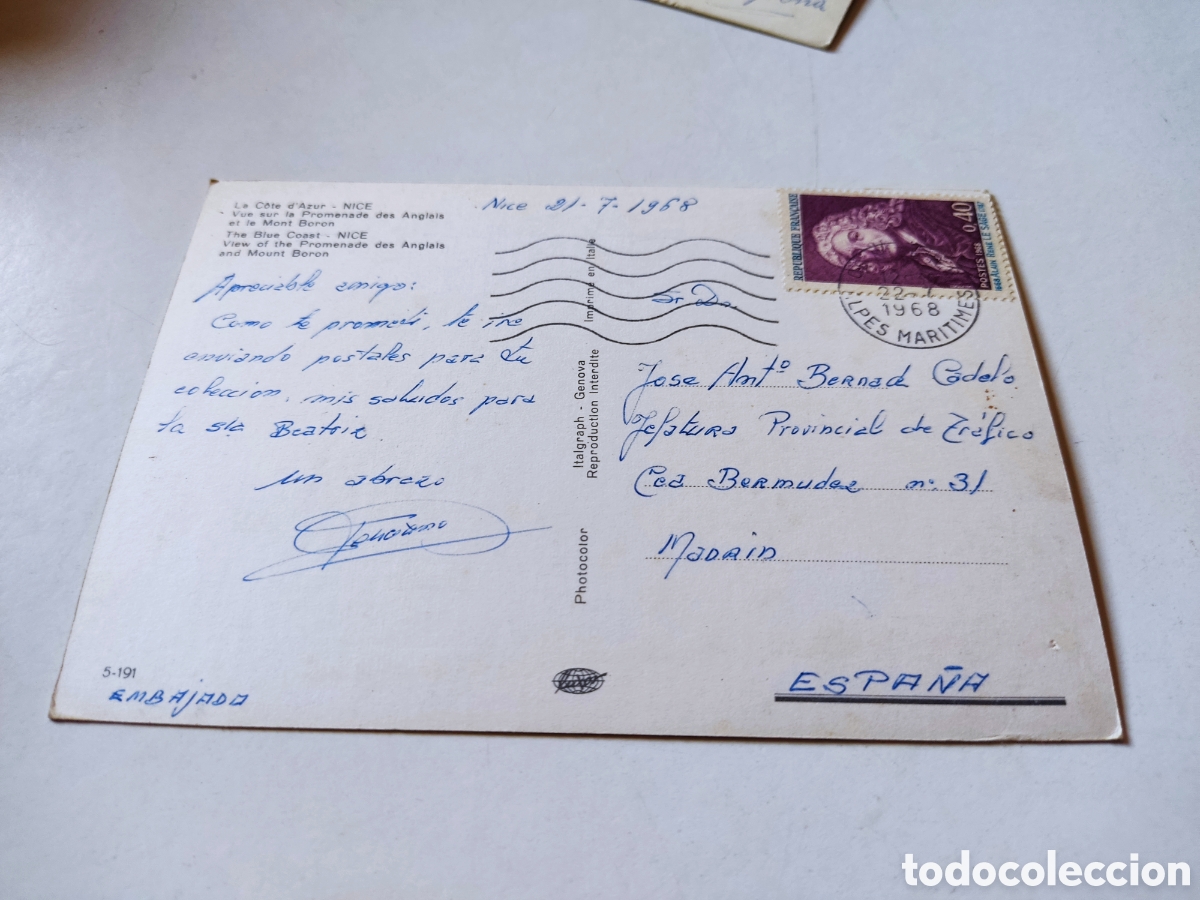 La Côte d'Azur - NICE
Vue sur la Promenade des Anglais
et le Mont Boron
The Blue Coast - NICE
View of the Promenade des Anglais
and Mount Boron
Nice 21-7-1968
Apreciable amigo:
Como te prometi, te ire
enviando postales para tu
coleccion, mis saludos para
la sta Beatriz
un abrazo
5-191
EMBAJADA
Photocolor
Italgraph - Genova
Reproduction Interdite
Imprime en Italie
REPUBLIQUE FRANÇAISE
0,40
POSTES 1968
ALAIN RENÉ LE SAGE
22-7
1968
ALPES MARITIMES
Sr. D.
Jose Antº Bernad Cadelo
Jefatura Provincial de Tráfico
Cea Bermudez nº. 31
MADRID
ESPAÑA
todocoleccion